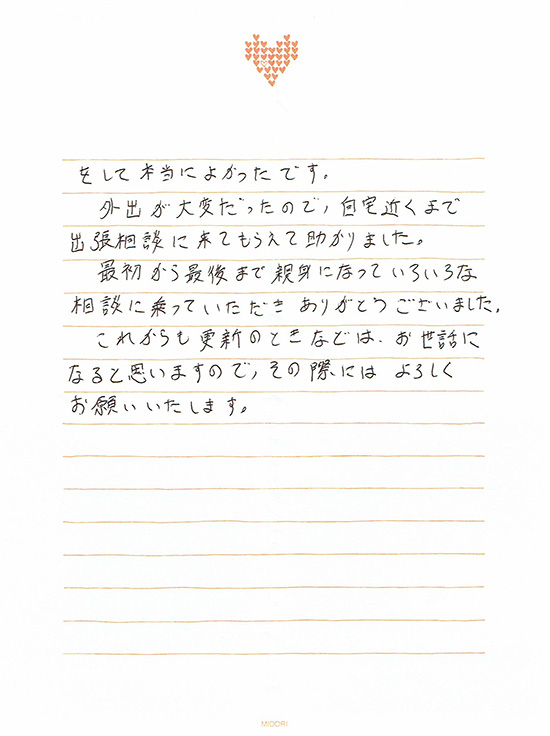 をして本当によかったです。
外出が大変だったので、自宅近くまで
出張相談に来てもらえて助かりました。
最初から最後まで親身になっていろいろな
相談に乗っていただきありがとうございました。
これからも更新のときなどは、お世話に
なると思いますので、その際にはよろしく
お願いいたします。
MIDORI